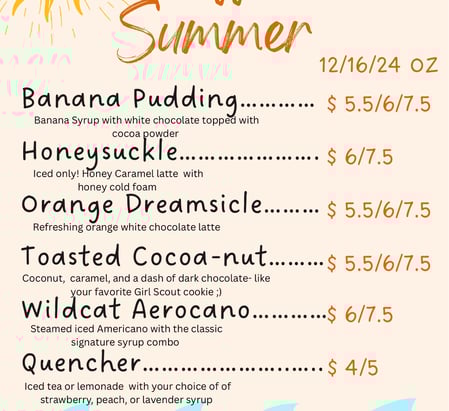 Summer
12/16/24 OZ
Banana Pudding............ $ 5.5/6/7.5
Banana Syrup with white chocolate topped with
cocoa powder
Honeysuckle....................... $ 6/7.5
Iced only! Honey Caramel latte with
honey cold foam
Orange Dreamsicle......... $ 5.5/6/7.5
Refreshing orange white chocolate latte
Toasted Cocoa-nut.........$ 5.5/6/7.5
Coconut, caramel, and a dash of dark chocolate- like
your favorite Girl Scout cookie ;)
Wildcat Aerocano............$ 6/7.5
Steamed iced Americano with the classic
signature syrup combo
Quencher.............................$ 4/5
Iced tea or lemonade with your choice of of
strawberry, peach, or lavender syrup